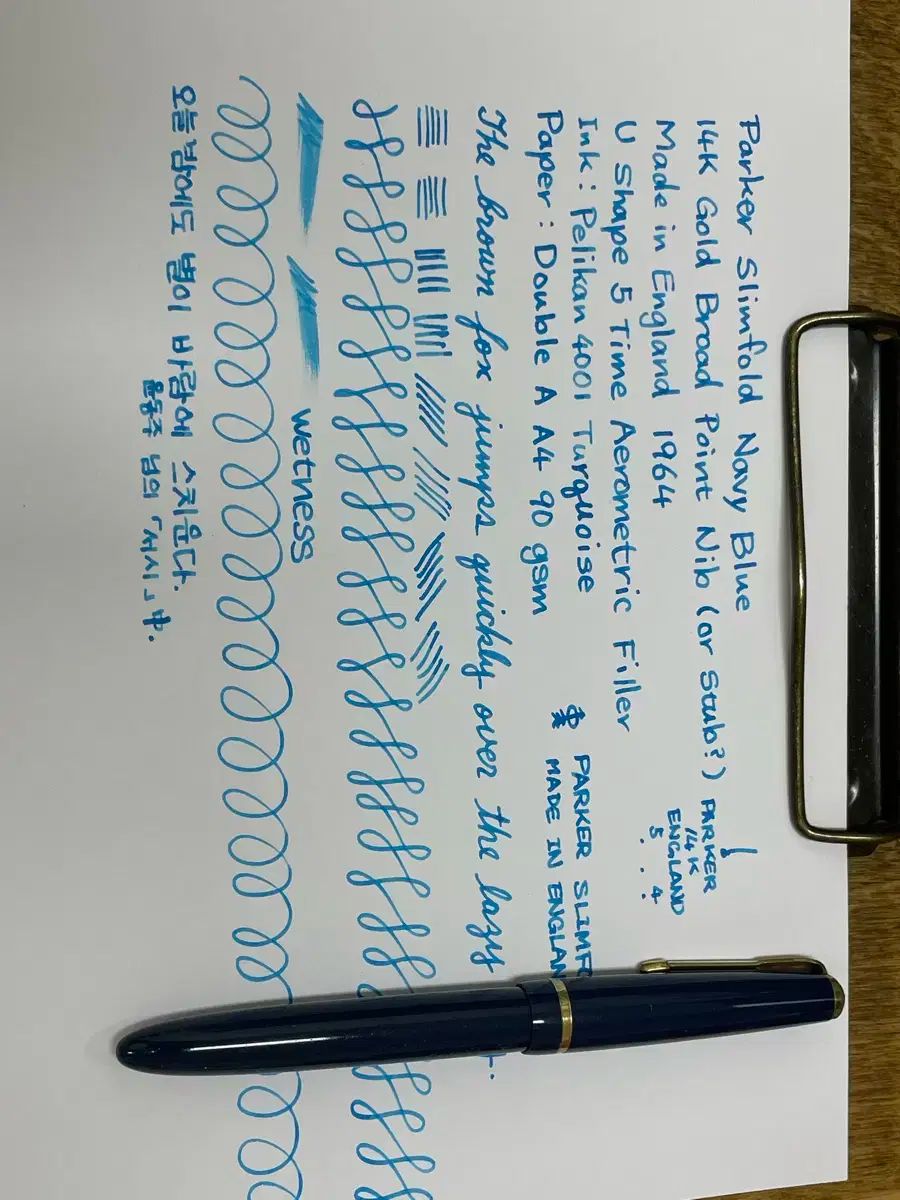 Parker Slimfold Navy Blue
14K Gold Broad Point Nib (or Stub?)
PARKER
14K
ENGLAND
5 . . 4.
Made in England 1964
U Shape 5 Time Aerometric Filler
Ink : Pelikan 4001 Turquoise
PARKER SLIMFO
Paper : Double A A4 90 gsm
MADE IN ENGLAN
The brown fox jumps quickly over the lazy
wetness
오늘 밤에도 별이 바람에 스치운다.
윤동주 님의 「서시」 中.